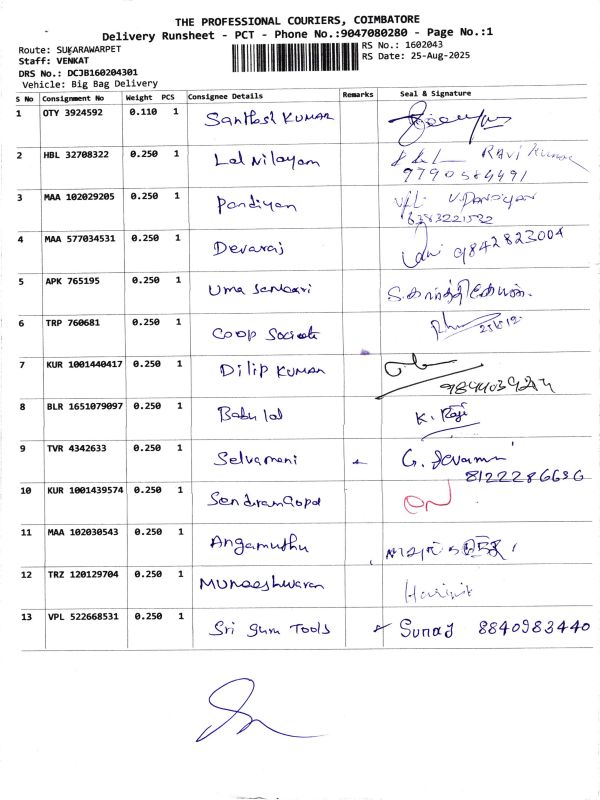 THE PROFESSIONAL COURIERS, COIMBATORE
Delivery Runsheet - PCT - Phone No.:9047080280 - Page No.:1
Route: SUKARAWARPET
RS No.: 1602043
Staff: VENKAT
RS Date: 25-Aug-2025
DRS No.: DCJB160204301
Vehicle: Big Bag Delivery
S No Consignment No Weight PCS Consignee Details Remarks Seal & Signature
1 OTY 3924592 0.110 1 Santhosh KUMAR
2 HBL 32708322 0.250 1 Lal Nilayam Ravi Kumar
9790584491
3 MAA 102029205 0.250 1 Pandiyan V. PANDIYAN
6383221582
4 MAA 577034531 0.250 1 Devaraj 9842823004
5 APK 765195 0.250 1 Uma Sankari
6 TRP 760681 0.250 1 Coop Societe
7 KUR 1001440417 0.250 1 Dilip KUMAR
8 BLR 1651079097 0.250 1 Babu lal K. Raji
9 TVR 4342633 0.250 1 Selvamani
8122286686
10 KUR 1001439574 0.250 1 SendiramGopal
11 MAA 102030543 0.250 1 Angamuthu
12 TRZ 120129704 0.250 1 Muneeshwaran
13 VPL 522668531 0.250 1 Sri Guru Tools Suraj 8840983440